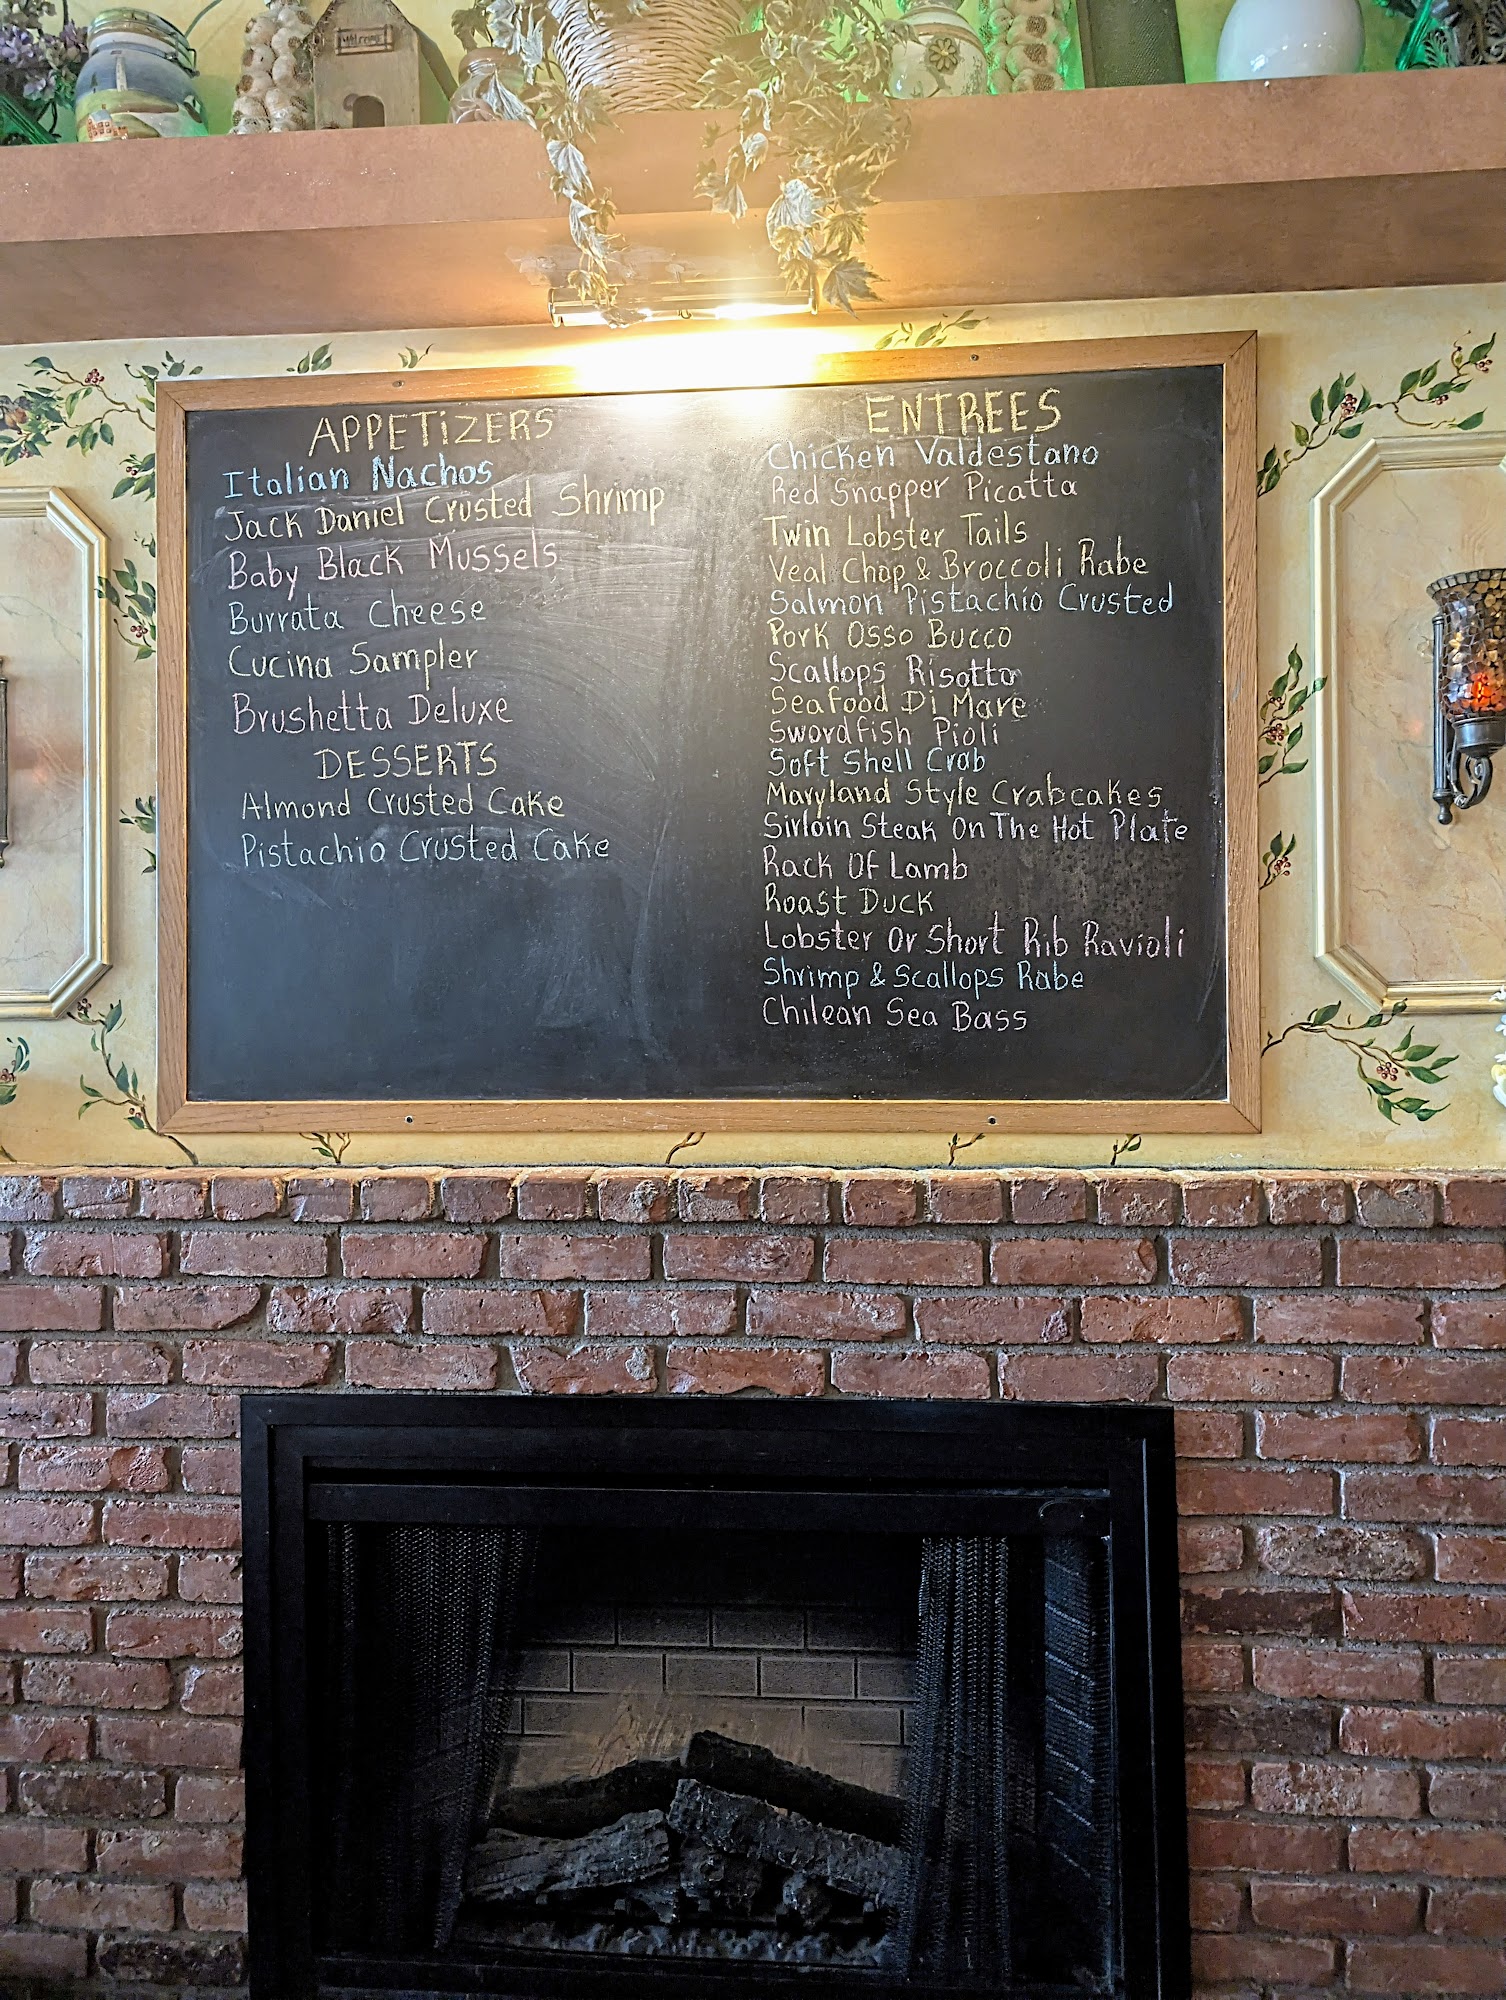 Welcome
APPETIZERS
Italian Nachos
Jack Daniel Crusted Shrimp
Baby Black Mussels
Burrata Cheese
Cucina Sampler
Brushetta Deluxe
DESSERTS
Almond Crusted Cake
Pistachio Crusted Cake
ENTREES
Chicken Valdestano
Red Snapper Picatta
Twin Lobster Tails
Veal Chop & Broccoli Rabe
Salmon Pistachio Crusted
Pork Osso Bucco
Scallops Risotto
Seafood Di Mare
Swordfish Pioli
Soft Shell Crab
Maryland Style Crabcakes
Sirloin Steak On The Hot Plate
Rack Of Lamb
Roast Duck
Lobster Or Short Rib Ravioli
Shrimp & Scallops Rabe
Chilean Sea Bass